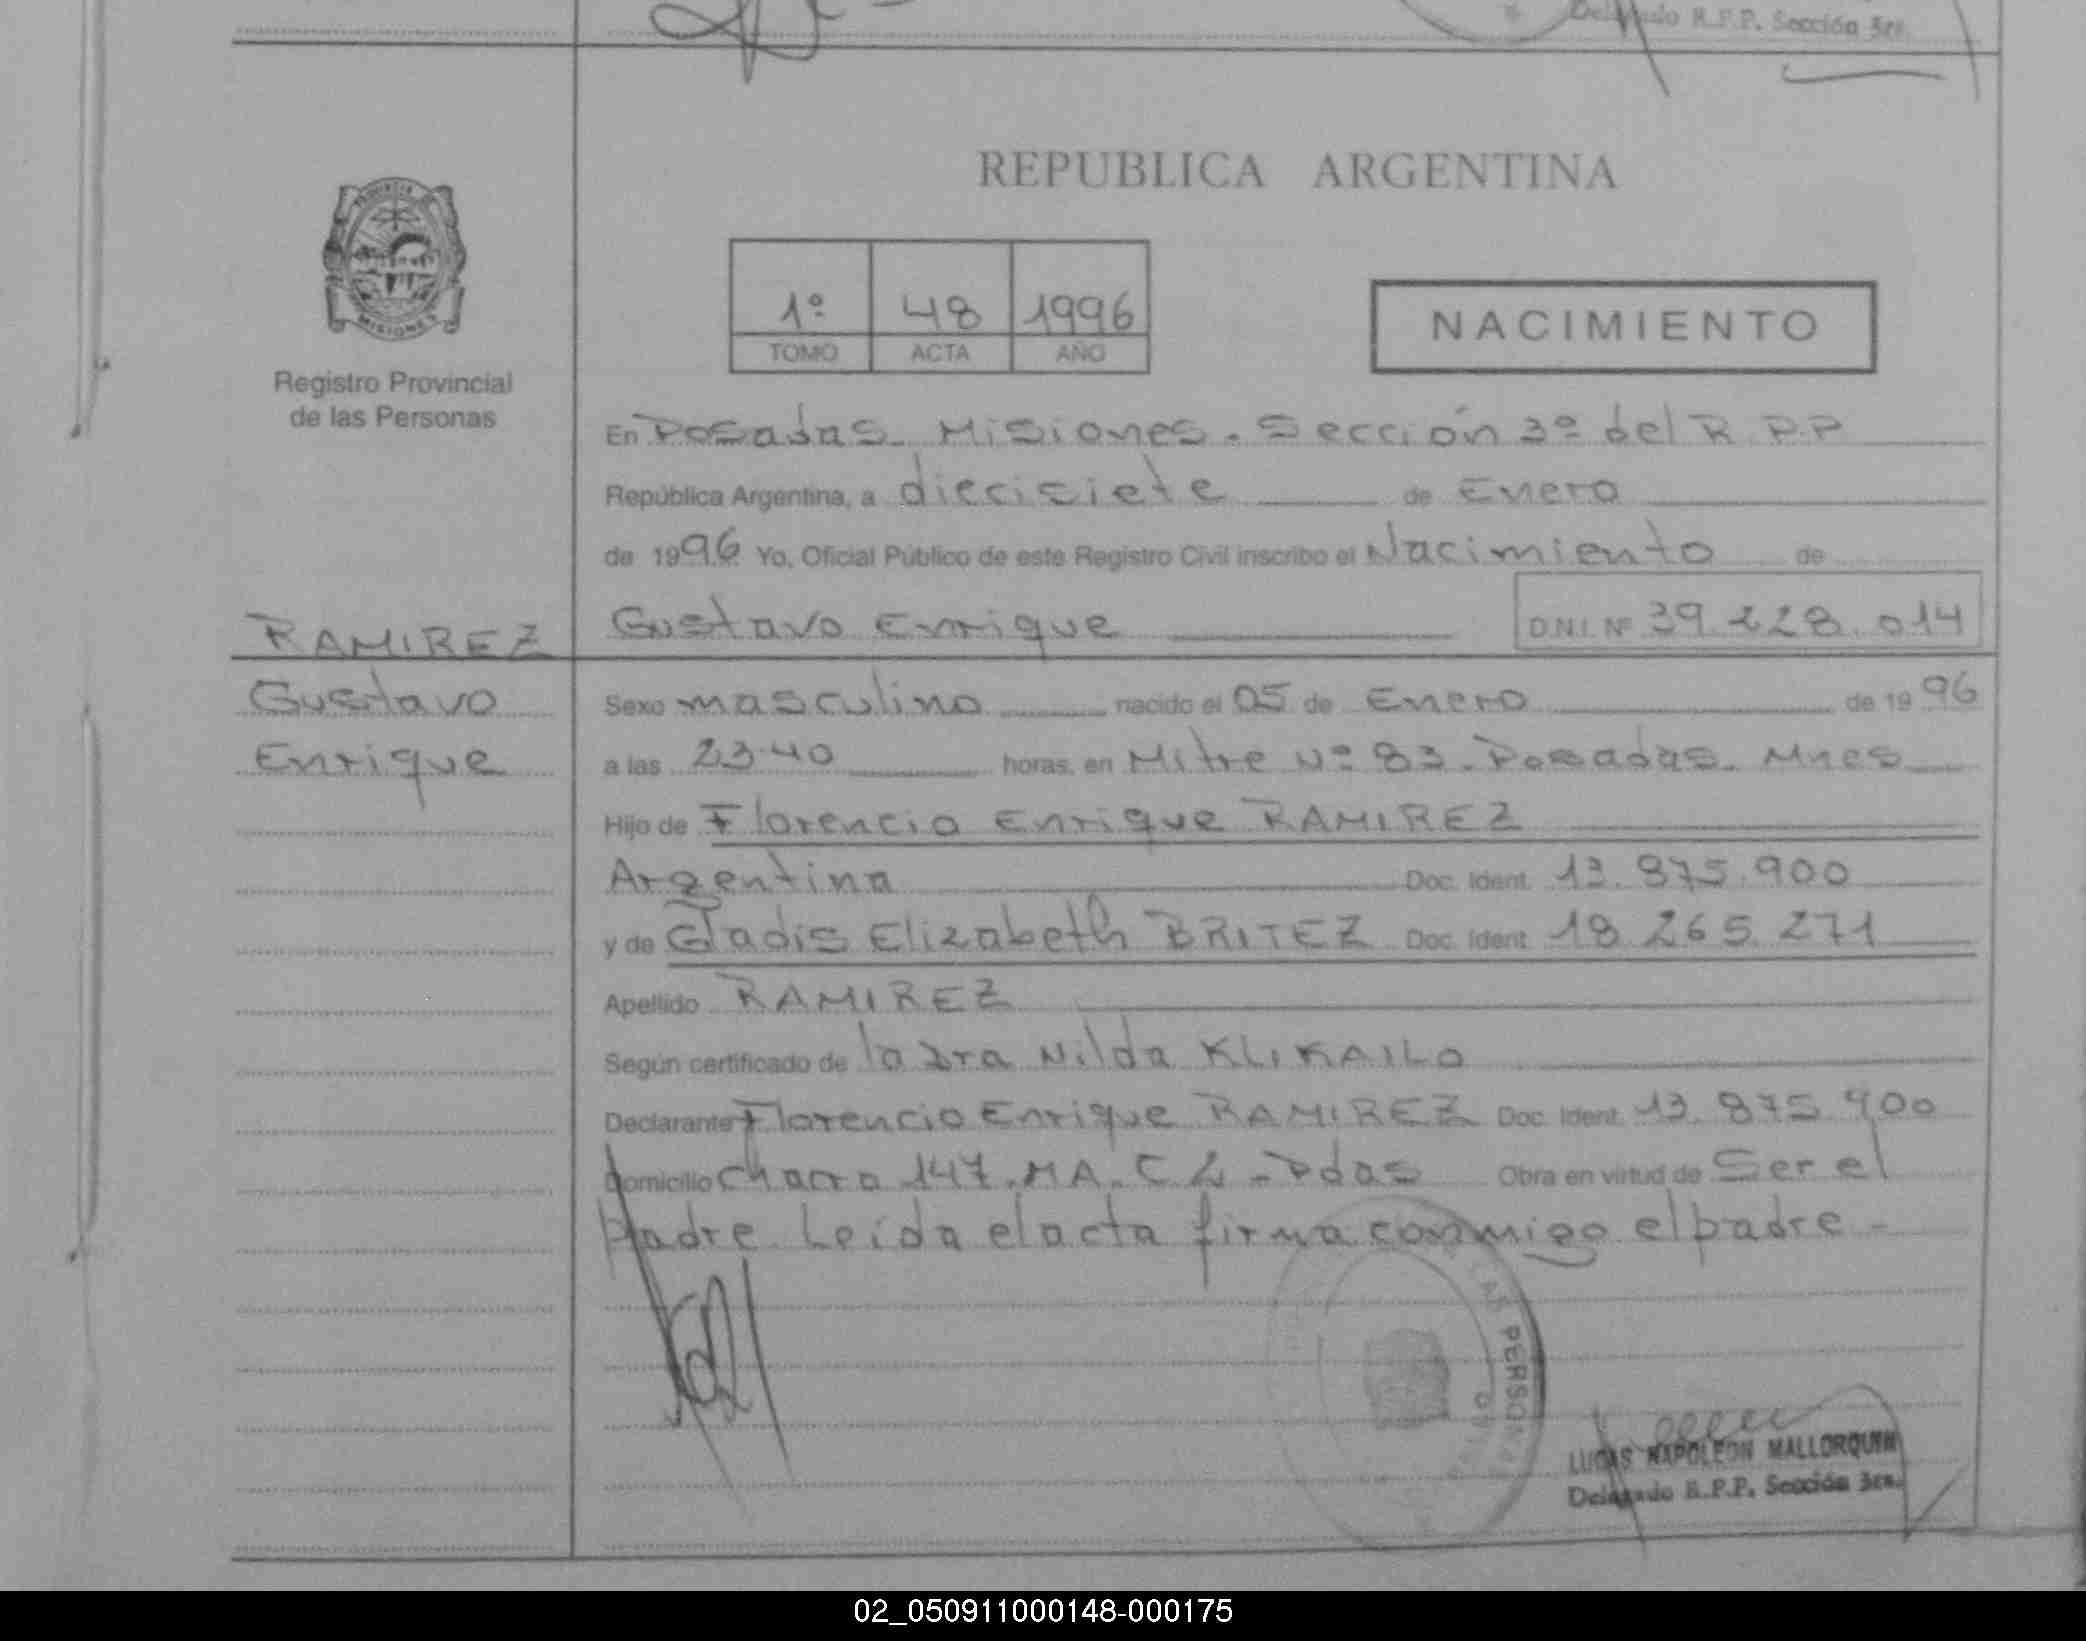 Delegado R.P.P. Sección 3ra.
REPUBLICA ARGENTINA
PROVINCIA
MISIONES
Registro Provincial
de las Personas
1º 48 1996
TOMO ACTA AÑO
NACIMIENTO
En Posadas. Misiones. Sección 3º del R.P.P
República Argentina, a diecisiete de Enero
de 1996 Yo, Oficial Público de este Registro Civil inscribo el Nacimiento de
RAMIREZ Gustavo Enrique D.N.I. Nº 39.228.014
Gustavo Sexo masculino nacido el 05 de Enero de 1996
Enrique a las 23.40 horas, en Mitre Nº 83. Posadas. Mnes
Hijo de Florencio Enrique RAMIREZ
Argentina Doc. Ident. 13.875.900
y de Gladis Elizabeth BRITEZ Doc. Ident. 18.265.271
Apellido RAMIREZ
Según certificado de la Dra Nilda KLIKAILO
Declarante Florencio Enrique RAMIREZ Doc. Ident. 13.875.900
Domicilio Chacra 147. MA. C - Pdas Obra en virtud de Ser el
Padre. Leída el acta firma conmigo el padre -
LAS PERSONAS
LUCAS NAPOLEON MALLORQUIN
Delegado R.P.P. Sección 3ra.
02_050911000148-000175